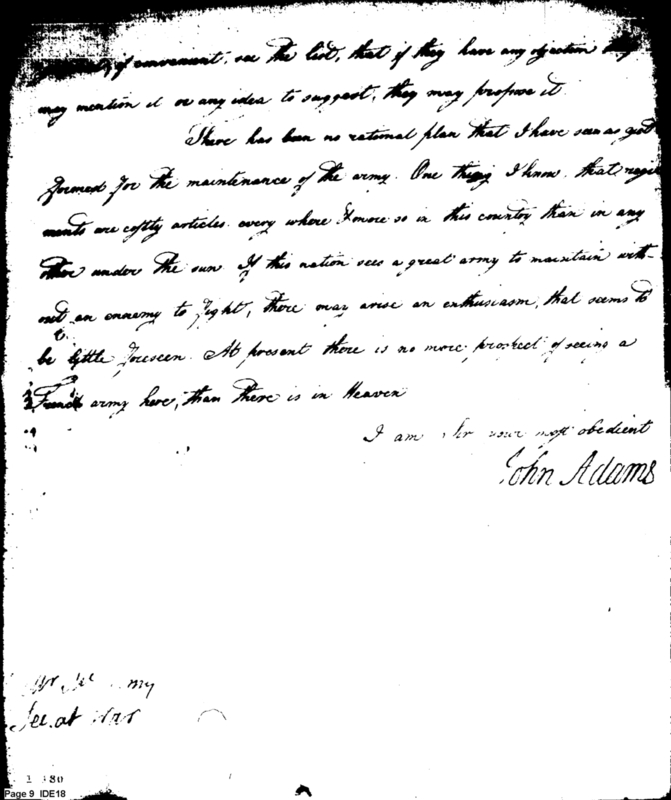 if convenient, see the list, that if they have any objection they
may mention it or any idea to suggest, they may propose it
There has been no rational plan that I have seen as yet
formed for the maintenance of the army. One thing I know, that regi
ments are costly articles every where & more so in this country than in any
other under the sun. If this nation sees a great army to maintain with-
out an ennemy to fight, there may arise an enthusiasm, that seems to
be little foreseen. At present there is no more prospect of seeing a
French army here, than there is in Heaven
I am Sir your most obedient
John Adams
Sec. at War
1 80
Page 9 IDE18